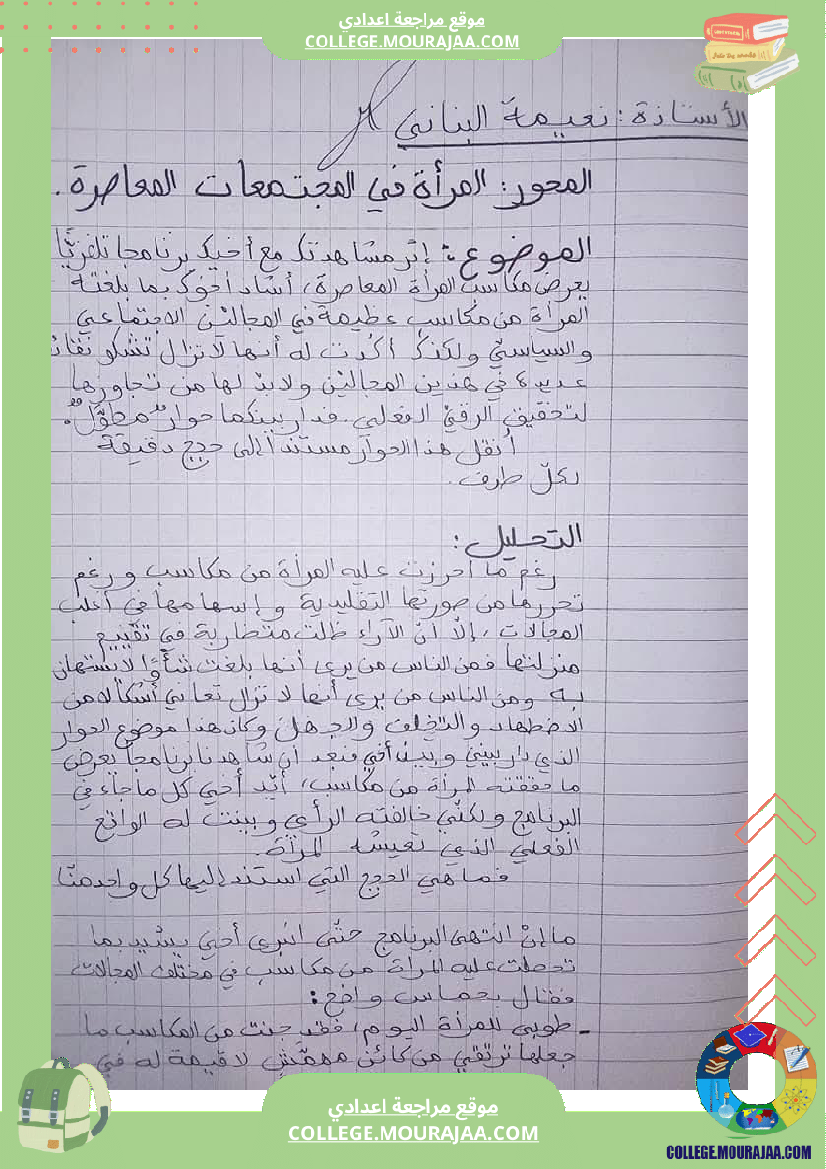 موقع مراجعة اعدادي
COLLEGE.MOURAJAA.COM
الأستاذة: نعيمة البناني
المحور: المرأة في المجتمعات المعاصرة.
الموضوع: إثر مشاهدتك مع أخيك برنامجا تلفزيّا
يعرض مكاسب المرأة المعاصرة، أشاد أخوك بما بلغته
المرأة من مكاسب عظيمة في المجالين الاجتماعي
والسياسيّ ولكنّك أكّدت له أنها لا تزال تشكو نقائ
عديدة في هذين المجاليْن ولا بدّ لها من تجاوزها
لتحقيق الرقيّ الفعلي. فدار بينكما حوار مطوّل.
أنقل هذا الحوار مستندا إلى حجج دقيقة
لكلّ طرف.
التحليل:
رغم ما أحرزت عليه المرأة من مكاسب ورغم
تحررها من صورتها التقليدية وإسهامها في أغلب
المجالات، إلاّ أنّ الآراء ظلت متضاربة في تقييم
منزلتها فمن الناس من يرى أنها بلغت شأوًا لا يستهان
به ومن الناس من يرى أنها لا تزال تعاني أشكالا من
الاضطهاد والتخلف والجهل وكان هذا موضوع الحوار
الذي دار بيني وبين أخي فبعد أن شاهدنا برنامجا يعرض
ما حققته المرأة من مكاسب، أيّد أخي كل ما جاء في
البرنامج ولكنّي خالفته الرأي وبينت له الواقع
الفعلي الذي تعيشه المرأة.
فما هي الحجج التي استند إليها كل واحد منّا
ما إنْ انتهى البرنامج حتّى انبرى أخي يشيد بما
تحصلت عليه المرأة من مكاسب في مختلف المجالات
فقال بحماس واضح:
- طوبى للمرأة اليوم، فقد جنت من المكاسب ما
جعلها ترتقي من كائن مهمّش لا قيمة له في
موقع مراجعة اعدادي
COLLEGE.MOURAJAA.COM
COLLEGE.MOURAJAA.COM